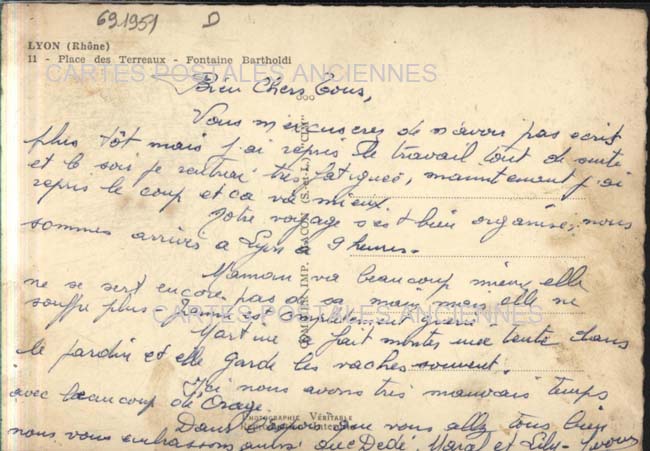 69.1951 D
LYON (Rhône)
11 - Place des Terreaux - Fontaine Bartholdi
CARTES POSTALES ANCIENNES
Bien Chers Tous,
Vous m'excuserez de n'avoir pas écrit
plus tôt mais j'ai repris le travail tout de suite
et le soir je rentrai très fatiguée, maintenant j'ai
repris le coup et ça va mieux.
Notre voyage s'est bien organisé, nous
sommes arrivés à Lyon à 9 heures.
Maman va beaucoup mieux, elle
ne se sert encore pas de sa main mais elle ne
souffre plus
CARTES POSTALES ANCIENNES
complètement
a fait une tente dans
le jardin et elle garde les vaches souvent.
Ici nous avons très mauvais temps
avec beaucoup de Orage.
PHOTOGRAPHIE VÉRITABLE
Dans que vous allez tous bien
nous vous embrassons Dédé, et
IMP. MACON (S.-et-L.) "CIM"